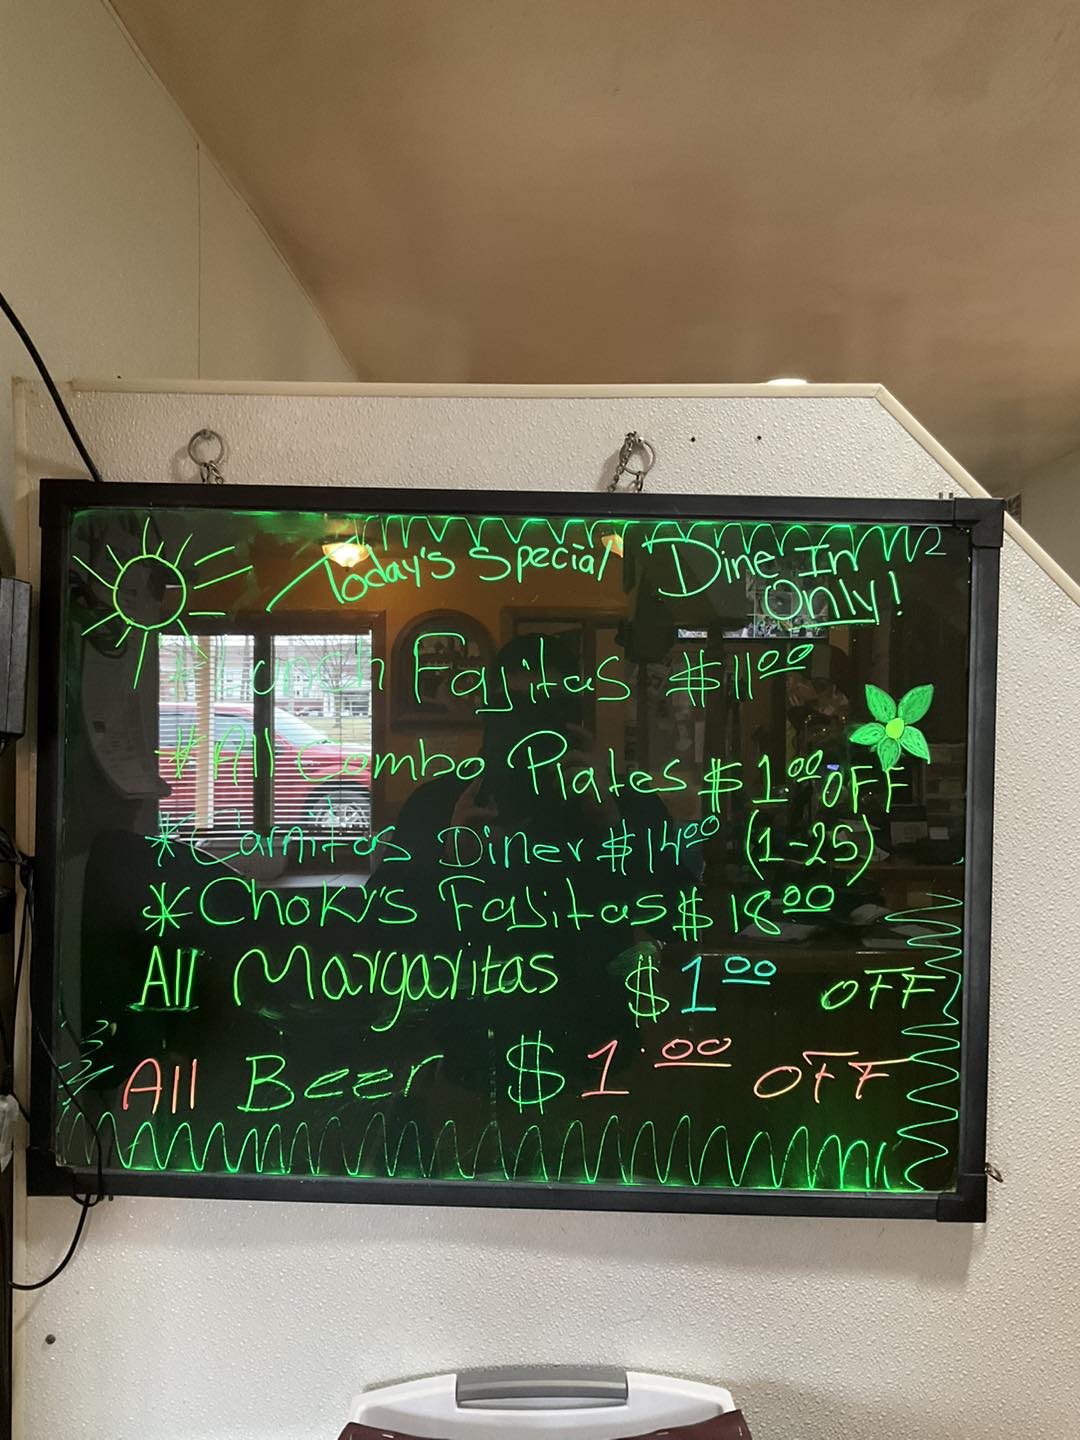 Today's Special Dine In
Only!
*Lunch Fajitas $11.00
*All Combo Plates $1.00 OFF
*Carnitas Diner $14.00 (1-25)
*Choky's Fajitas $18.00
All Margaritas $1.00 OFF
All Beer $1.00 OFF